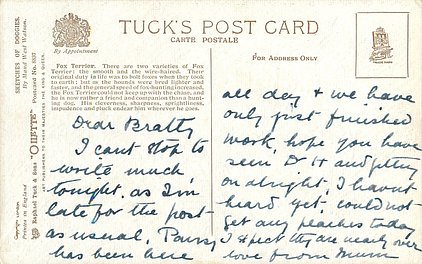 TUCK'S POST CARD
CARTE POSTALE
By Appointment
FOR ADDRESS ONLY
Fox Terrier. There are two varieties of Fox
Terrier; the smooth and the wire-haired. Their
original duty in life was to bolt foxes when they took
to earth; but as the hounds were bred lighter and
faster, and the general speed of fox-hunting increased,
the Fox Terrier could not keep up with the chase, and
he is now rather a friend and companion than a hunt-
ing dog. His cleverness, sharpness, sprightliness,
impudence and pluck endear him wherever he goes.
SKETCHES OF DOGGIES.
By Maud West Watson.
Raphael Tuck & Sons' "OILETTE" Postcard No.
ART PUBLISHERS TO THEIR MAJESTIES THE KING & QUEEN
Copyright London
Printed in England
Dear Bratty
I cant stop to
write much
tonight, as I'm
late for the post
as usual. Pansy
has been here
all day & we have
only just finished
work, hope you have
seen D H and getting
on alright, I havnt
heard yet. could not
get any peaches today
I expect they are nearly over
love from Mum